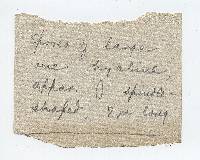 Spores of base
are hyaline,
appar. () spindle-
shaped, 7µ long